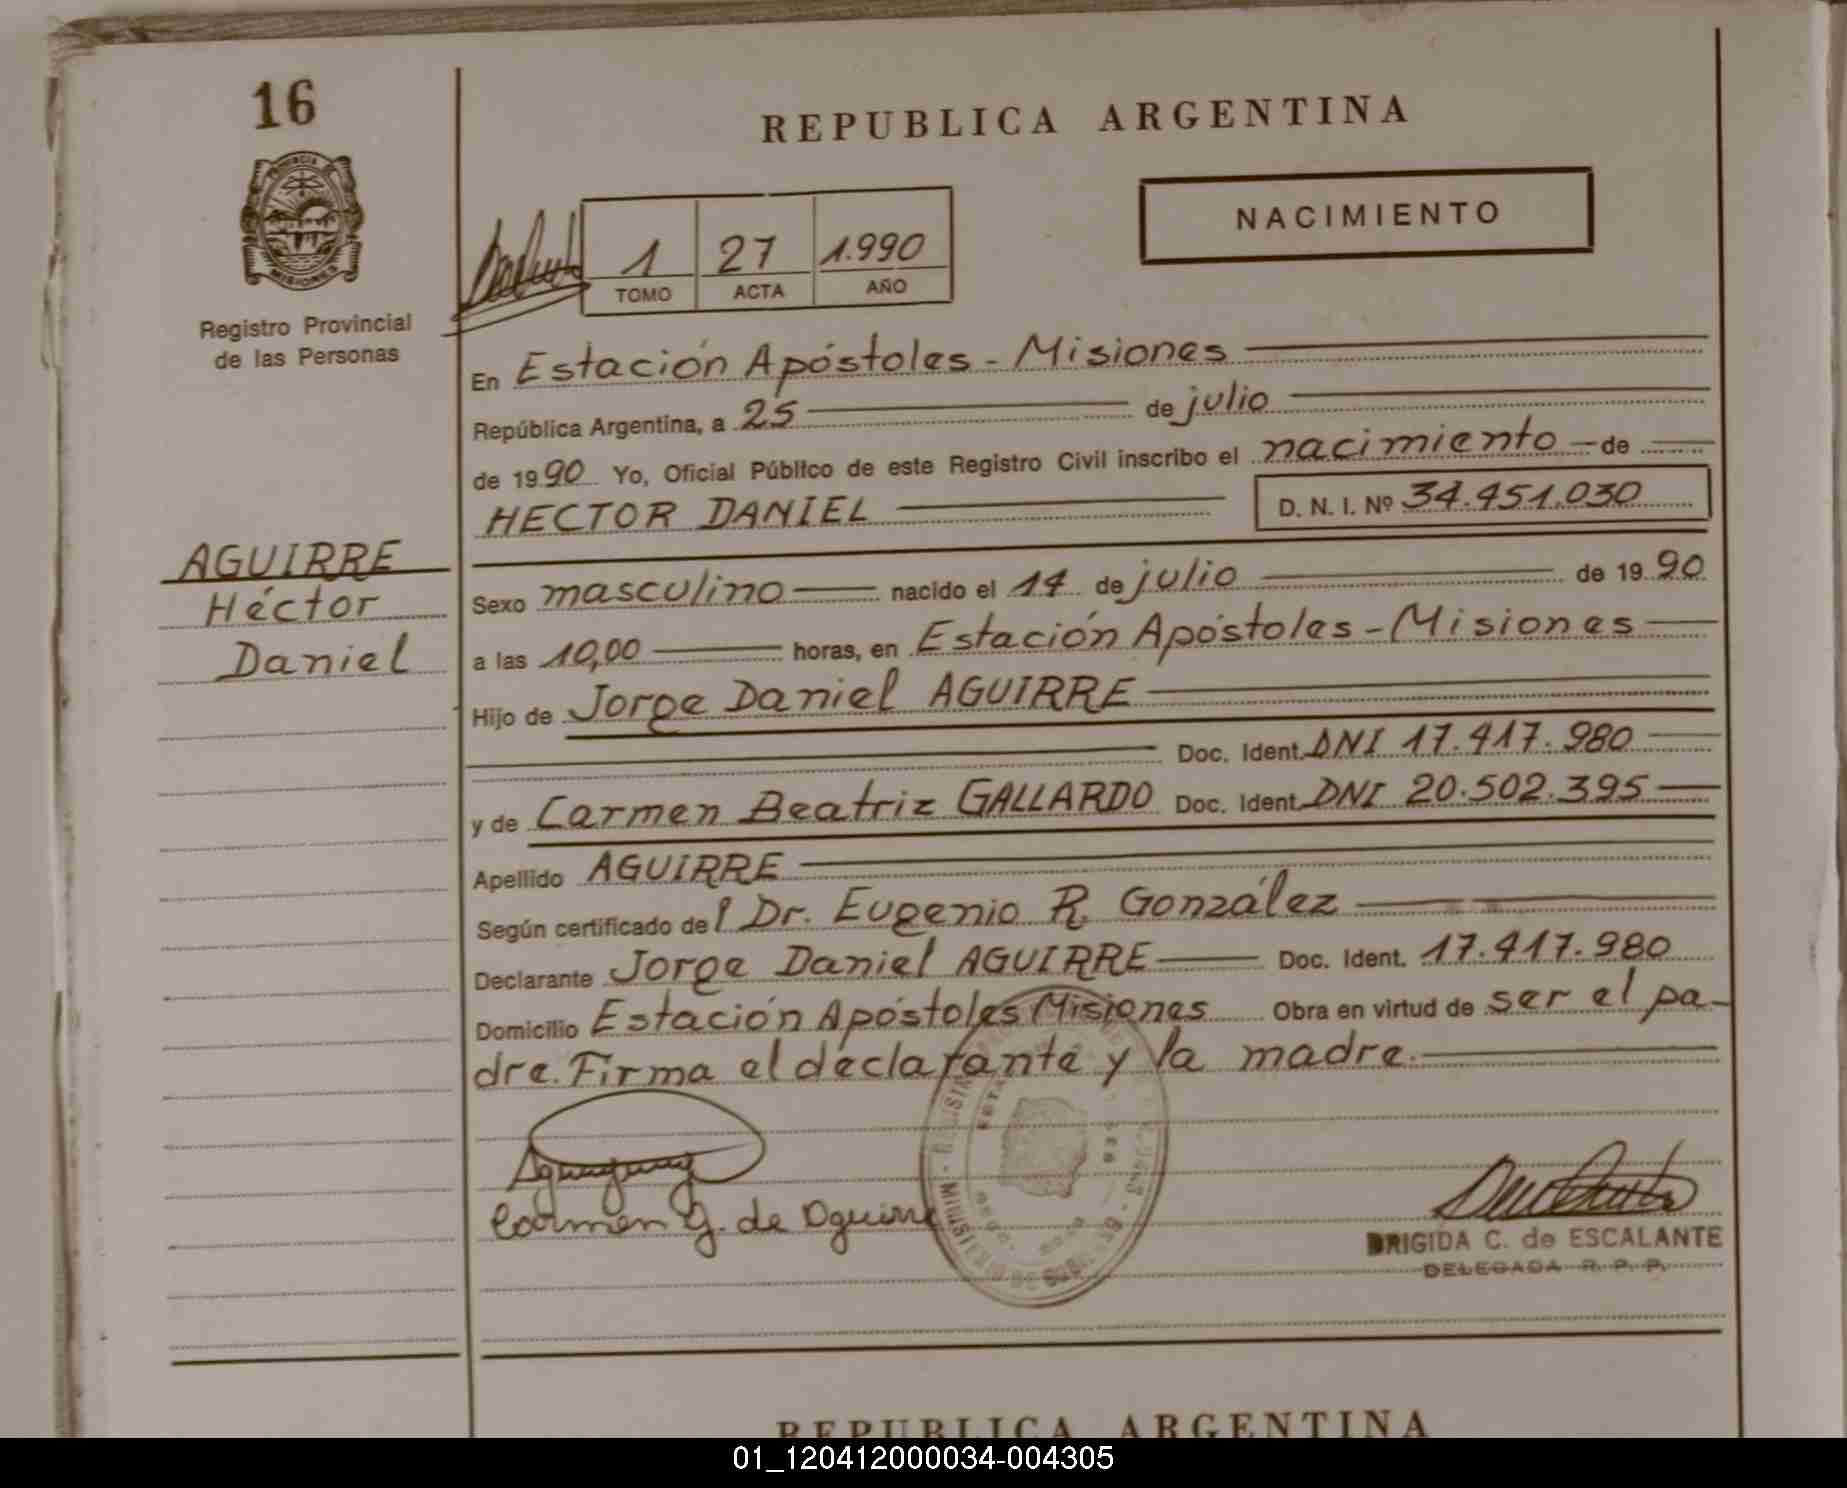 16
PROVINCIA DE
MISIONES
Registro Provincial
de las Personas
REPUBLICA ARGENTINA
NACIMIENTO
1 27 1.990
TOMO ACTA AÑO
En Estación Apóstoles - Misiones
República Argentina, a 25 de julio
de 1990 Yo, Oficial Público de este Registro Civil inscribo el nacimiento de
HECTOR DANIEL D. N. I. Nº 34.451.030
AGUIRRE
Héctor
Daniel
Sexo masculino nacido el 14 de julio de 1990
a las 10,00 horas, en Estación Apóstoles - Misiones
Hijo de Jorge Daniel AGUIRRE
Doc. Ident. DNI 17.417.980
y de Carmen Beatriz GALLARDO Doc. Ident. DNI 20.502.395
Apellido AGUIRRE
Según certificado del Dr. Eugenio R. González
Declarante Jorge Daniel AGUIRRE Doc. Ident. 17.417.980
Domicilio Estación Apóstoles Misiones Obra en virtud de ser el pa-
dre. Firma el declarante y la madre.
Carmen G. de Aguirre
BRIGIDA C. de ESCALANTE
DELEGADA R. P. P.
REPUBLICA ARGENTINA
01_120412000034-004305